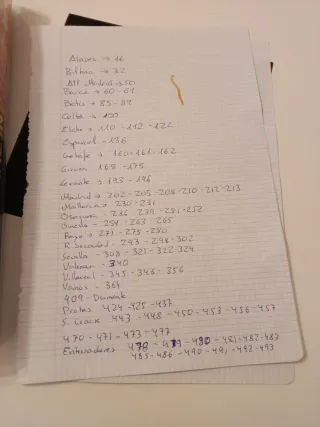 Alaves → 16
Bilbao → 32
Atl Madrid → 50
Barca → 60-61
Betis → 85-89
Celta → 100
Elche → 110-112-122
Espanyol - 136
Getafe → 160-161-162
Girona 165-175
Levante → 193-196
Madrid → 202-205-208-210-212-213
Mallorca → 230-231
Osasuna - 236
Oviedo - 259-263-265
Rayo → 271-275-280
R. Sociedad - 293-298-302
Sevilla - 308-321-322-324
Valencia - 340
Villarreal - 345-346-356
Varios - 364
409-Diamante
Pivotes 424-425-437
S. Crack 443-448-450-453-456-457
470-471-473-477
Entrenadores 478-479-480-481-482-483
485-486-490-491-492-493